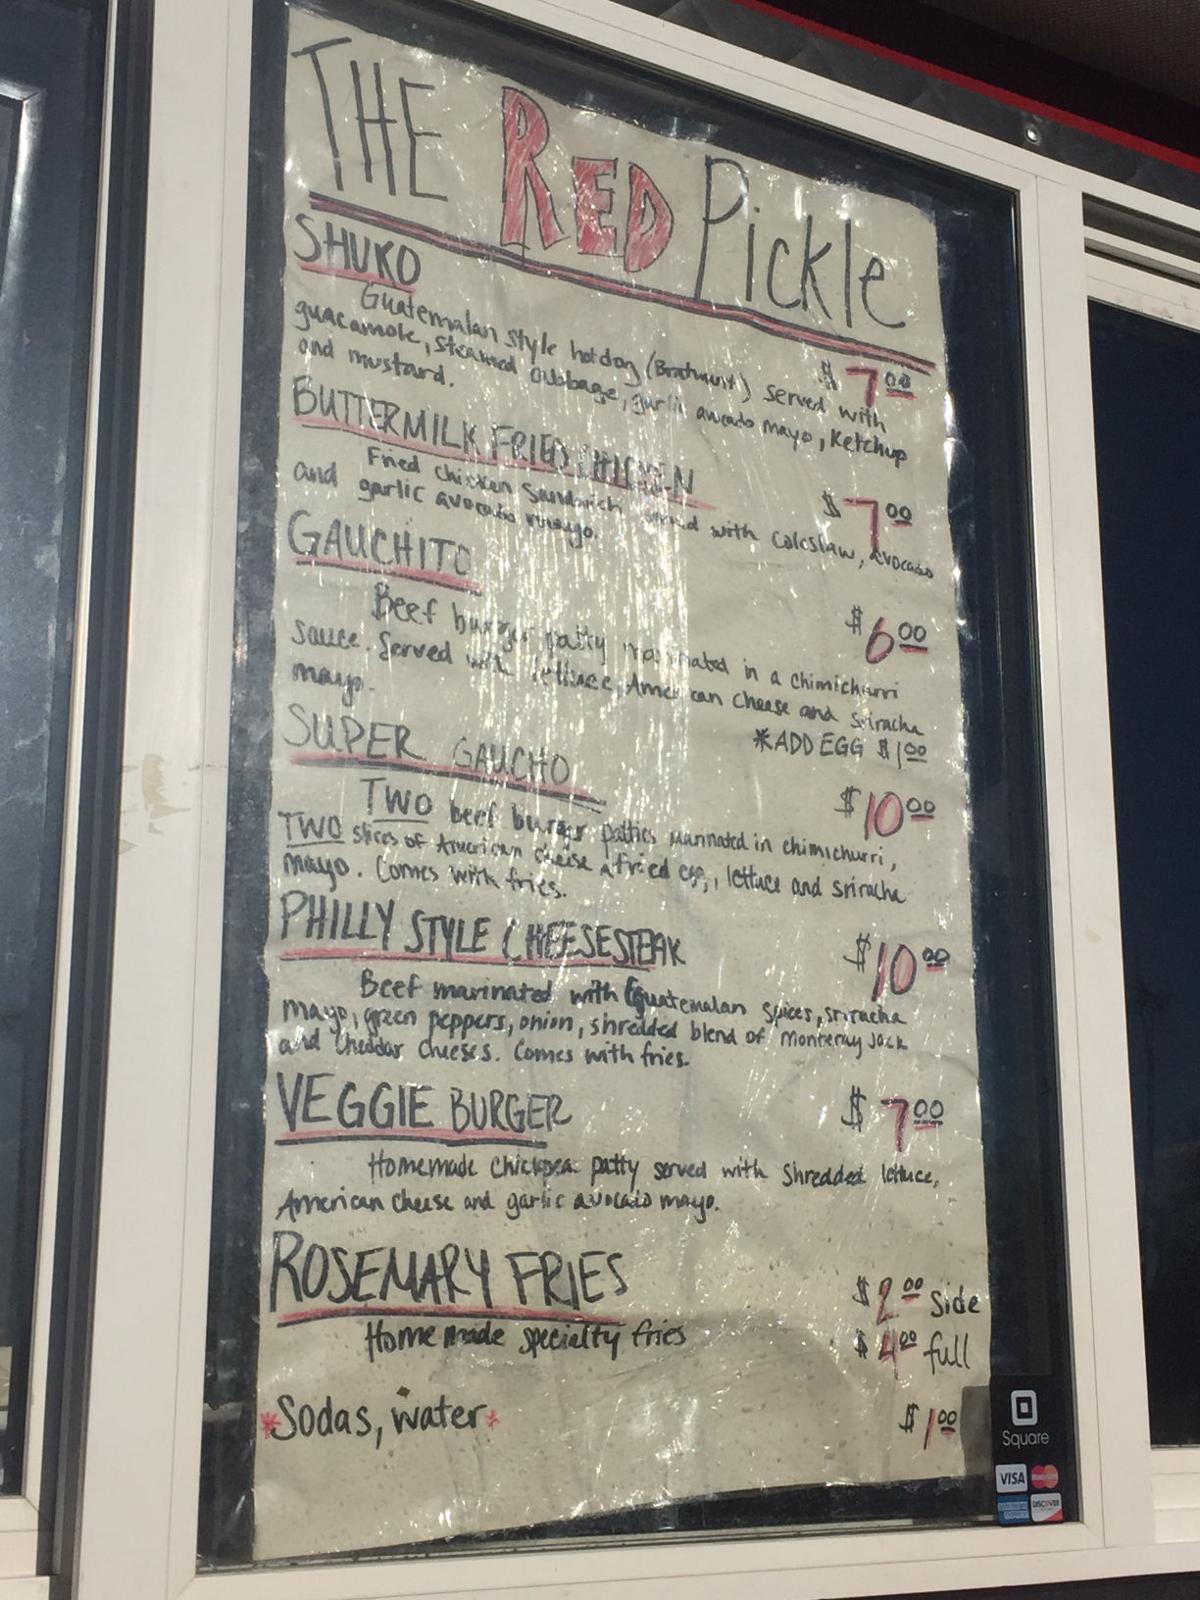 THE RED Pickle
SHUKO
$7.00
Guatemalan style hotdog (Bratwurst) served with
guacamole, steamed cabbage, garlic avocado mayo, ketchup
and mustard.
BUTTERMILK FRIED CHICKEN
$7.00
Fried chicken sandwich served with coleslaw, avocado
and garlic avocado mayo.
GAUCHITO
$6.00
Beef burger patty marinated in a chimichurri
sauce. Served with lettuce, American cheese and sriracha
mayo.
*ADD EGG $1.00
SUPER GAUCHO
$10.00
TWO beef burger patties marinated in chimichurri,
TWO slices of American cheese a fried egg, lettuce and sriracha
mayo. Comes with fries.
PHILLY STYLE CHEESESTEAK
$10.00
Beef marinated with Guatemalan spices, sriracha
mayo, green peppers, onion, shredded blend of Monteray Jack
and Cheddar cheeses. Comes with fries.
VEGGIE BURGER
$7.00
Homemade chickpea patty served with shredded lettuce,
American cheese and garlic avocado mayo.
ROSEMARY FRIES
$2.00 side
Homemade specialty fries
$4.00 full
*Sodas, water*
$1.00
Square
VISA MasterCard
DISCOVER